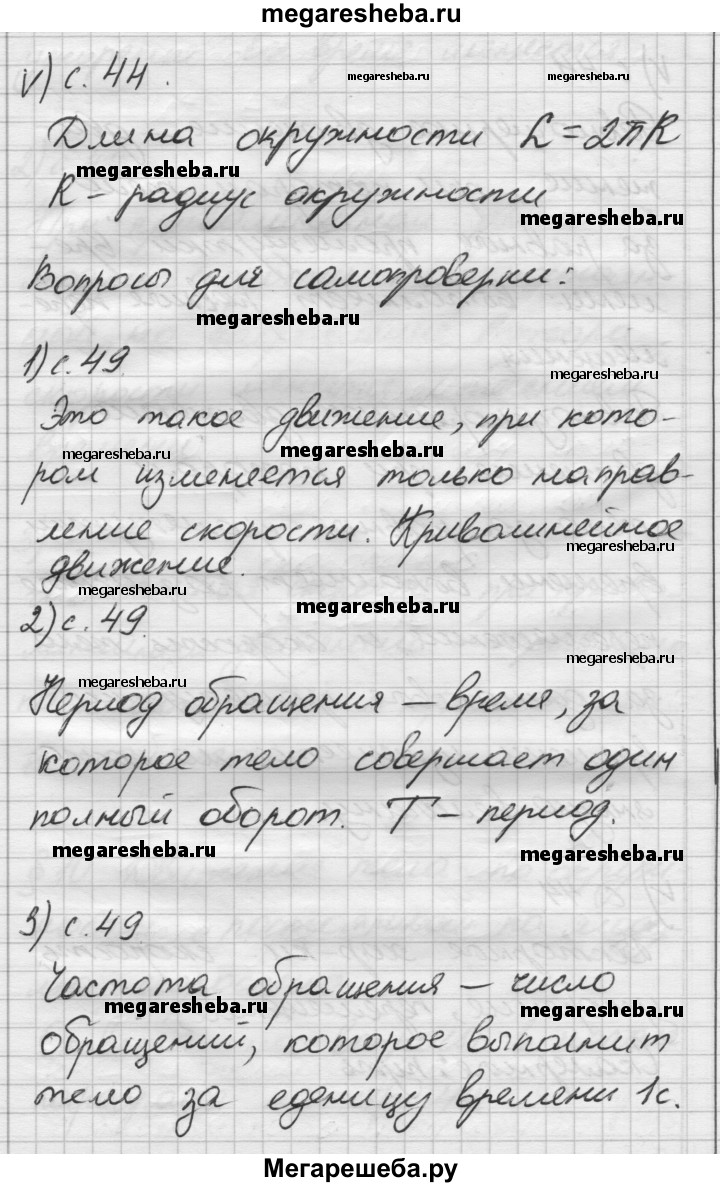 megaresheba.ru
V) с. 44.
megaresheba.ru megaresheba.ru
Длина окружности L = 2πR
megaresheba.ru
R - радиус окружности
megaresheba.ru
Вопросы для самопроверки:
megaresheba.ru
1) с. 49
megaresheba.ru
Это такое движение, при кото-
megaresheba.ru megaresheba.ru
ром изменяется только направ-
ление скорости. Криволинейное
megaresheba.ru
движение.
megaresheba.ru megaresheba.ru
2) с. 49.
megaresheba.ru
megaresheba.ru
Период обращения – время, за
которое тело совершает один
полный оборот. T – период.
megaresheba.ru megaresheba.ru
3) с. 49
Частота обращения – число
megaresheba.ru megaresheba.ru
обращений, которое выполнит
тело за еденицу времени 1с.
Мегарешеба.ру